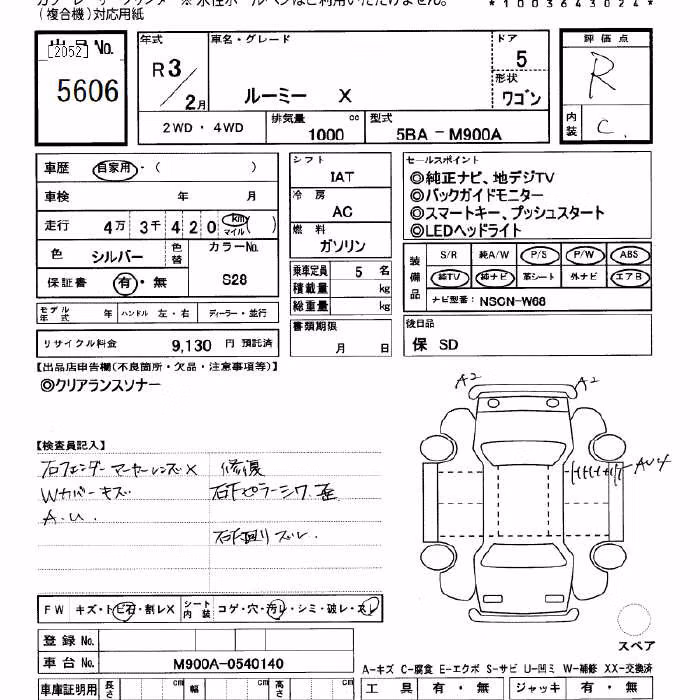 (複合機)対応用紙
*1003643024*
出品No. [2052]
5606
年式 R3/2月
車名・グレード ルーミー X
ドア 5
形状 ワゴン
評価点 R
内装 C
2WD・4WD
排気量 1000 cc
型式 5BA-M900A
車歴 自家用・( )
車検 年 月
走行 4万3千420 km マイル ( )
色 シルバー 色替 カラーNo. S28
保証書 有・無
モデル年式 年 ハンドル 左・右 ディーラー・並行
リサイクル料金 9,130 円 預託済
シフト IAT
冷房 AC
燃料 ガソリン
乗車定員 5 名
積載量 kg
総重量 kg
書類期限 月 日
セールスポイント
◎純正ナビ、地デジTV
◎バックガイドモニター
◎スマートキー、プッシュスタート
◎LEDヘッドライト
装備品 S/R 純A/W P/S P/W ABS
純TV 純ナビ 革シート 外ナビ エアB
ナビ型番: NSCN-W68
後日品
保 SD
【出品店申告欄(不良箇所・欠品・注意事項等)】
◎クリアランスソナー
【検査員記入】
右フェンダーマーカーレンズX 修復
Wカバーキズ 右Fピラーシワ、歪
A.U. 右F廻りズレ
A2 A2
AU4
FW キズ・トビ石・割レX シート内装 コゲ・穴・汚レ・シミ・破レ・スレ
登録No.
車台No. M900A-0540140
スペア
A-キズ C-腐食 E-エクボ S-サビ U-凹ミ W-補修 XX-交換済
車庫証明用 長さ cm 幅 cm 高さ cm
工具 有・無 ジャッキ 有・無